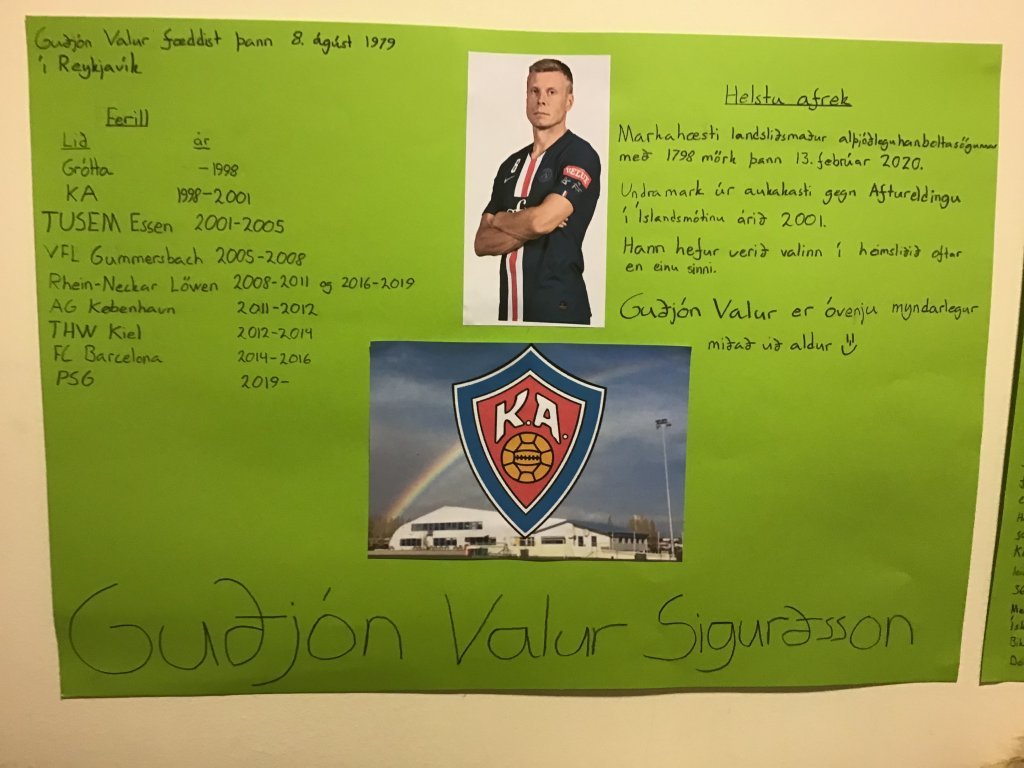 Guðjón Valur fæddist þann 8. ágúst 1979
í Reykjavík
Ferill
Lið ár
Grótta -1998
KA 1998-2001
TUSEM Essen 2001-2005
VFL Gummersbach 2005-2008
Rhein-Neckar Löwen 2008-2011 og 2016-2019
AG København 2011-2012
THW Kiel 2012-2014
FC Barcelona 2014-2016
PSG 2019-
Helstu afrek
Markahæsti landsliðsmaður alþjóðleguhanboltasögunnar
með 1798 mörk þann 13. febrúar 2020.
Undramark úr aukakasti gegn Aftureldingu
í Íslandsmótinu árið 2001.
Hann hefur verið valinn í heimsliðið oftar
en einu sinni.
Guðjón Valur er óvenju myndarlegur
miðað við aldur
K.A.
Guðjón Valur Sigurðsson